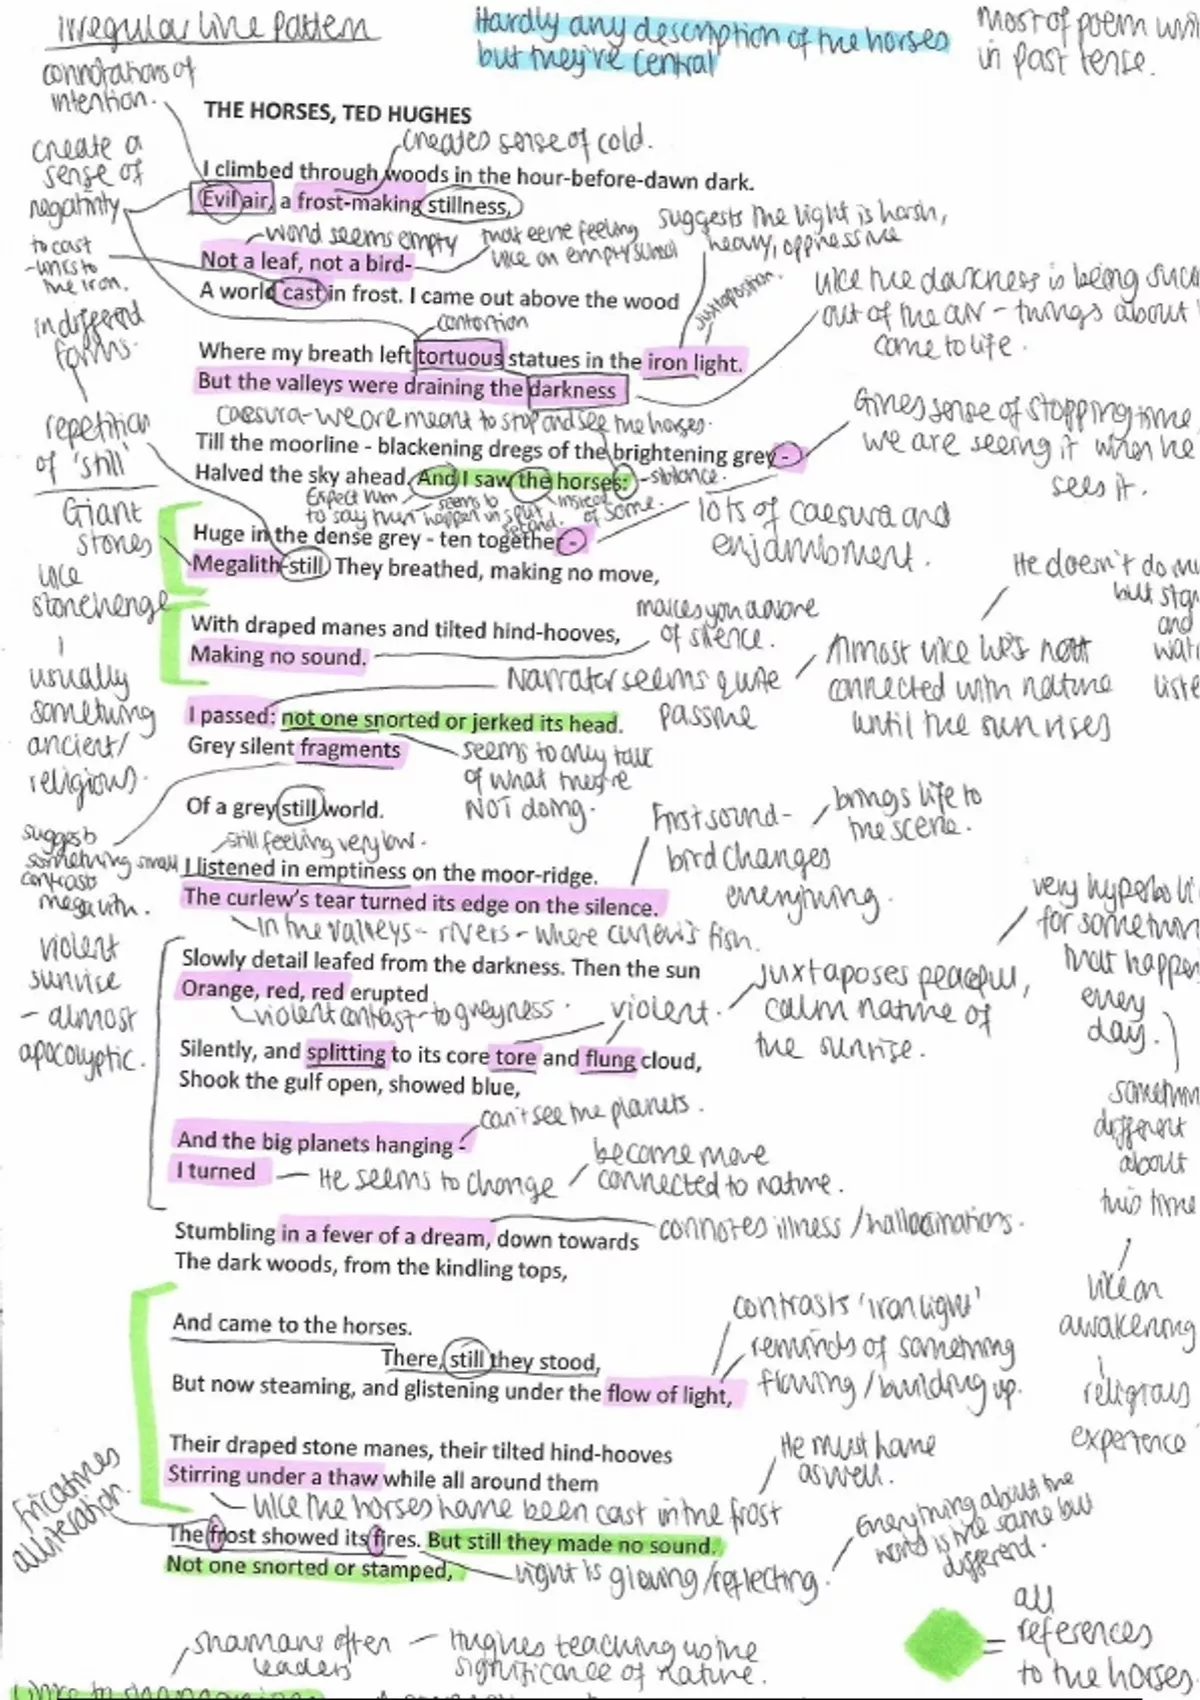 Irregular line pattern
Hardly any description of the horses
but they're central
Most of poem
in past tense.
connotations of
intention.
THE HORSES, TED HUGHES
creates sense of cold.
create a
sense of
negativity
I climbed through woods in the hour-before-dawn dark.
Evil air, a frost-making stillness,
word seems empty
that eerie feeling
like an empty school
suggests the light is harsh,
heavy, oppressive
to cast
-links to
the iron.
Not a leaf, not a bird-
A world cast in frost. I came out above the wood
juxtaposition.
like the darkness is being
out of the air - things about
come to life.
in different
forms.
contortion
Where my breath left tortuous statues in the iron light.
But the valleys were draining the darkness
caesura - we are meant to stop and see the horses.
Gives sense of stopping time,
we are seeing it when he
sees it.
repetition
of 'still'
Till the moorline - blackening dregs of the brightening grey -
Halved the sky ahead. And I saw the horses:
- sibilance.
Expect him
to say then
seems to
happen in split
second.
instead
of some.
Giant
stones
like
stonehenge
usually
something
ancient/
religious.
lots of caesura and
enjambment.
Huge in the dense grey - ten together -
Megalith-still. They breathed, making no move,
He doesn't do
but
and
makes you aware
of silence.
With draped manes and tilted hind-hooves,
Making no sound.
Narrator seems quite
passive
Almost like he's not
connected with nature
until the sun rises
I passed: not one snorted or jerked its head.
Grey silent fragments
seems to only talk
of what they're
NOT doing.
Of a grey still world.
suggests
something small
contrasts
megalith.
still feeling very low.
First sound-
bird changes
everything.
brings life to
the scene.
I listened in emptiness on the moor-ridge.
The curlew's tear turned its edge on the silence.
In the valleys - rivers - where curlews fish.
very
for
that
every
day.
violent
sunrise
- almost
apocolyptic.
Slowly detail leafed from the darkness. Then the sun
Orange, red, red erupted
violent contrast to greyness.
violent.
juxtaposes peaceful,
calm nature of
the sunrise.
Silently, and splitting to its core tore and flung cloud,
Shook the gulf open, showed blue,
can't see the planets.
And the big planets hanging -
I turned
He seems to change
become more
connected to nature.
different
about
this time
like an
awakening
religious
experience
Stumbling in a fever of a dream, down towards
connotes illness / hallucinations.
The dark woods, from the kindling tops,
And came to the horses.
There, still they stood,
But now steaming, and glistening under the flow of light,
contrasts 'iron light'
reminds of something
flowing / building up.
Their draped stone manes, their tilted hind-hooves
Stirring under a thaw while all around them
He must have
as well.
like the horses have been cast in the frost
Fricatives
alliteration.
The frost showed its fires. But still they made no sound.
Not one snorted or stamped,
light is glowing/reflecting.
Everything about the
world is the same but
different.
= all
references
to the horses
shamans often
leaders
Hughes teaching us the
significance of nature.